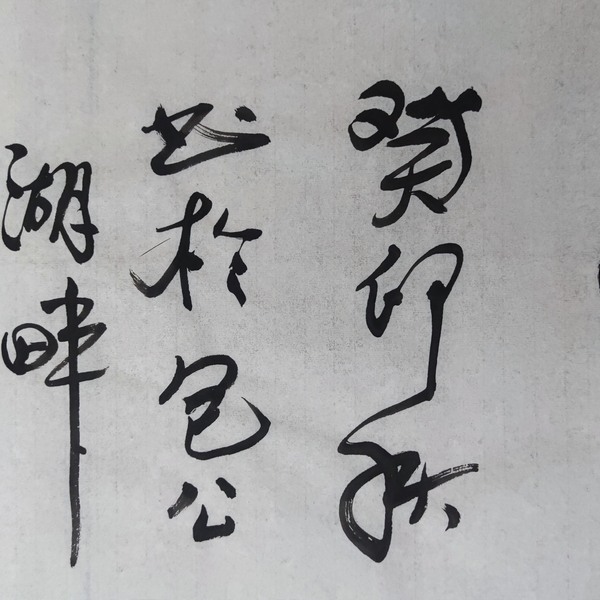 癸卯秋
书于包公
湖畔